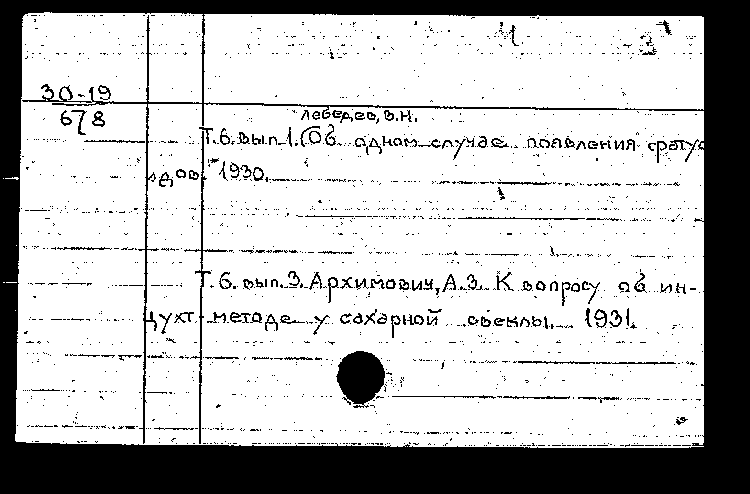 30-19
678
Лебедев, В.Н.
Т.6. вып.1. (Об одном случае появления
1930.
Т.6. вып.3. Архимович, А.З. К вопросу об ин-
цухт-методе у сахарной свеклы. 1931.